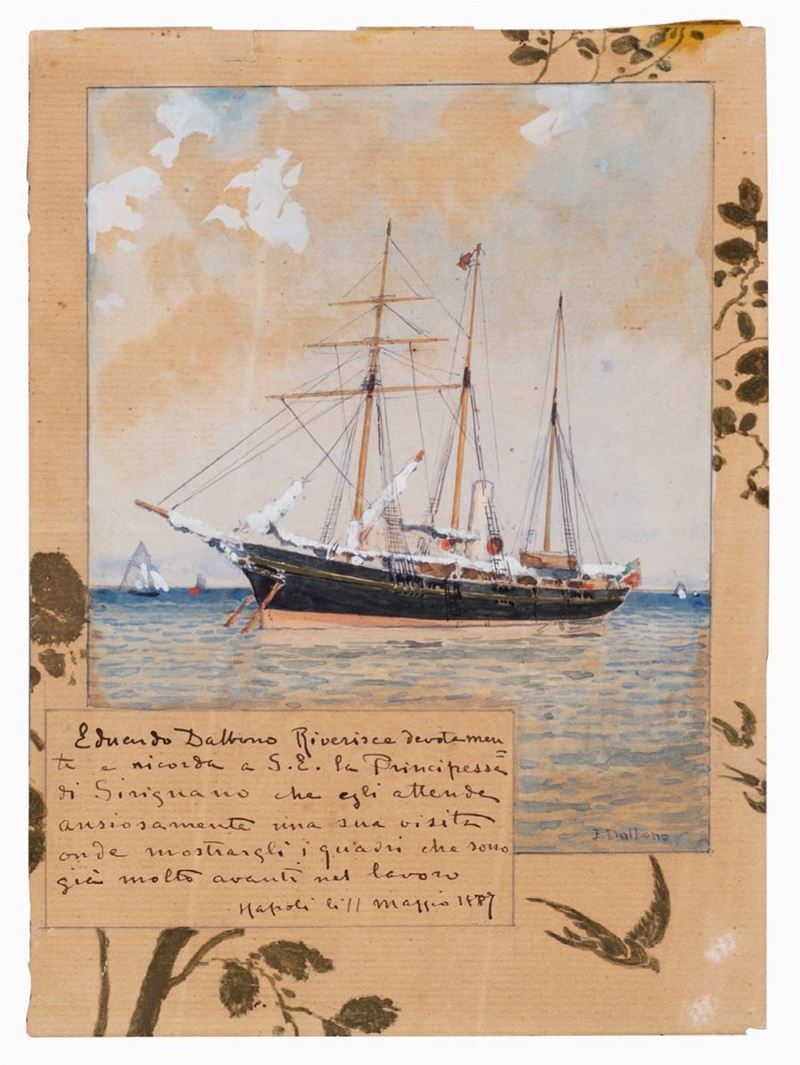 Eduardo Dalbono Riverisce devotamen
te e ricorda a S.E. la Principessa
di Sirignano che egli attende
ansiosamente una sua visita
onde mostrargli i quadri che sono
già molto avanti nel lavoro
Napoli li 11 Maggio 1887
E. Dalbono